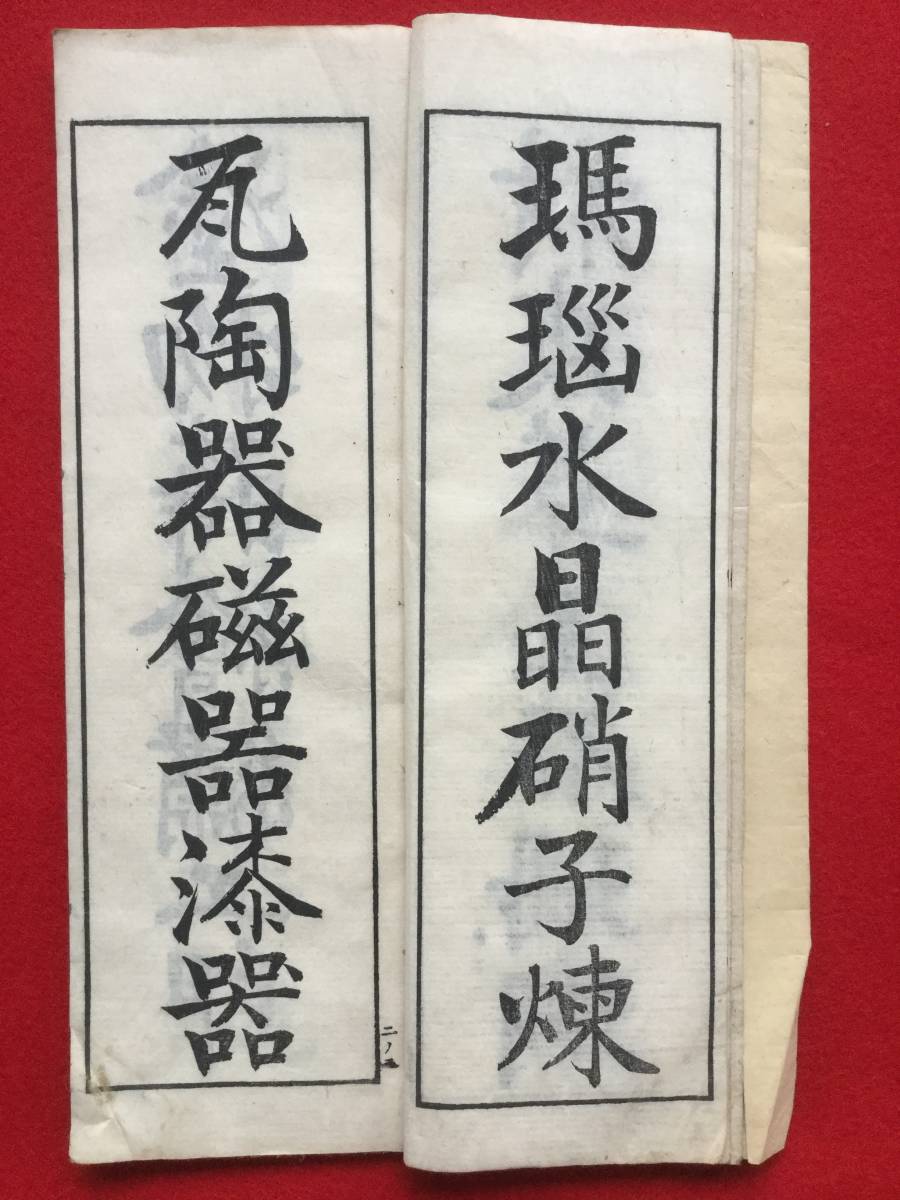 瑪瑙水晶硝子煉
瓦陶器磁器漆器
二ノ